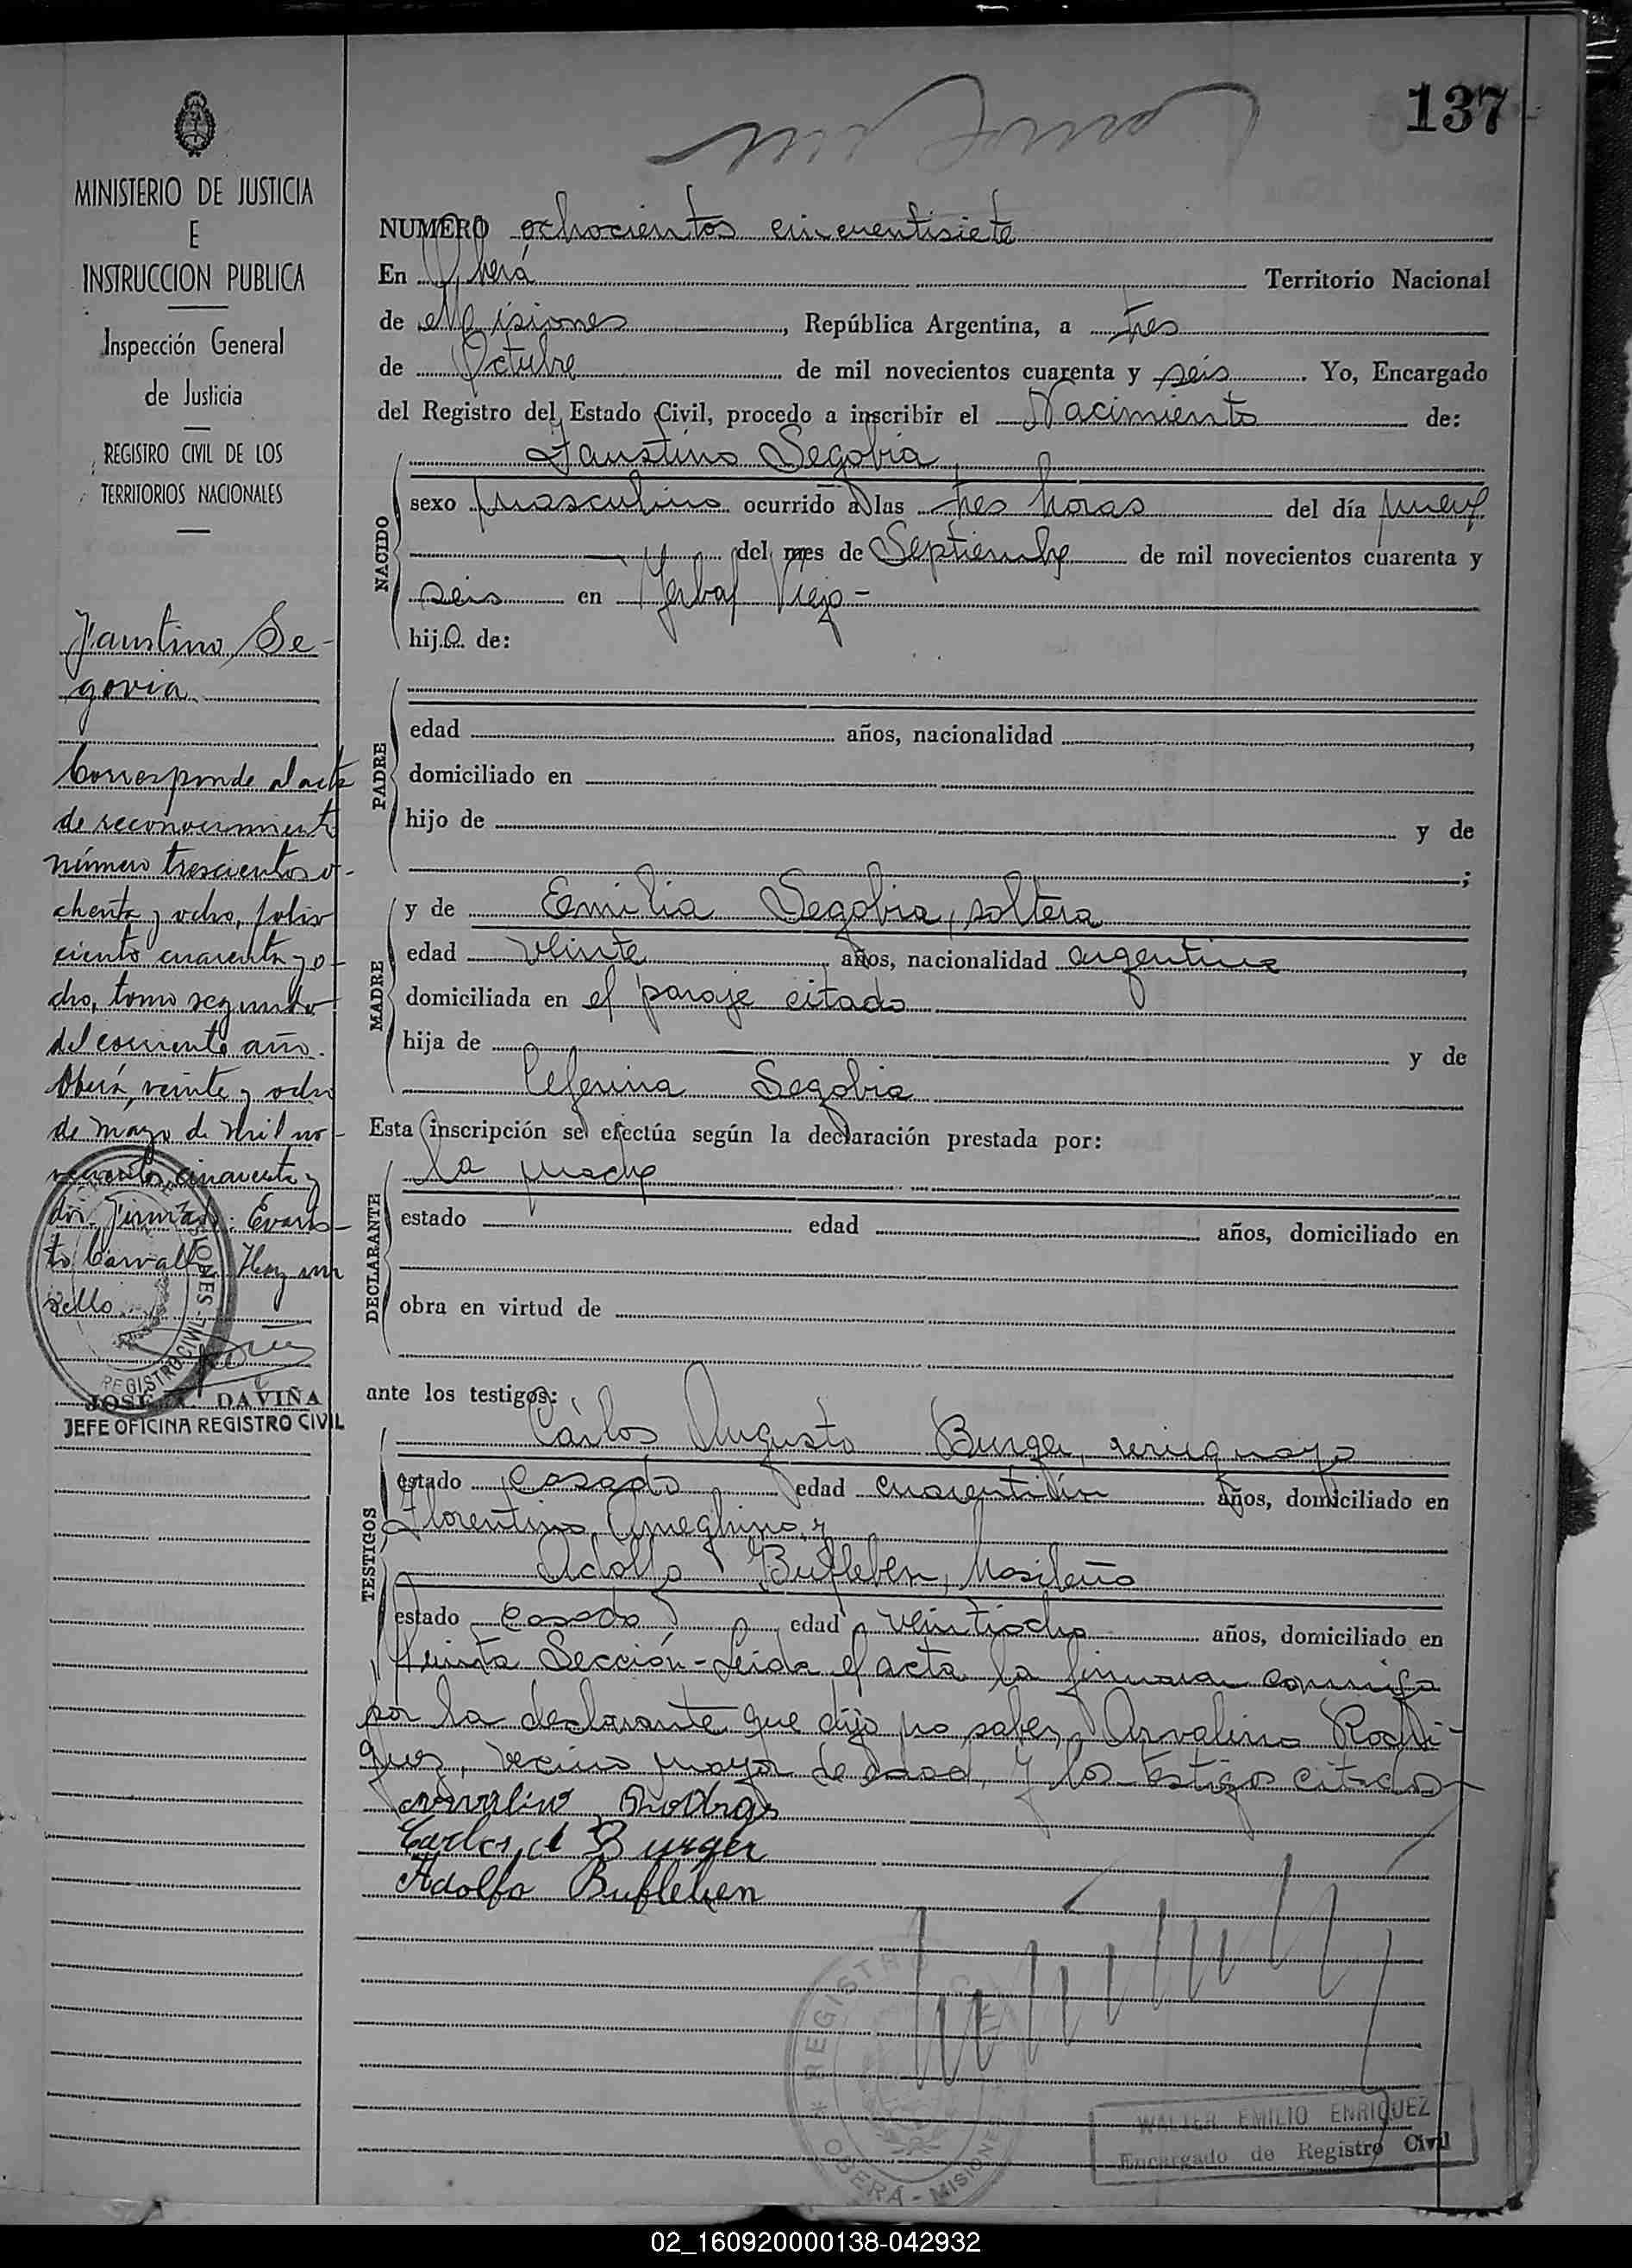 137
MINISTERIO DE JUSTICIA
E
INSTRUCCION PUBLICA
Inspección General
de Justicia
REGISTRO CIVIL DE LOS
TERRITORIOS NACIONALES
Faustino Se-
govia
Corresponde al acta
de reconocimiento
número trescientos o-
chenta y ocho, folio
ciento cuarenta y o-
cho, tomo segundo
del corriente año.
Oberá, veinte y ocho
de mayo de mil no-
vecientos cincuenta y
dos. Firmado: Evaris-
to Carvallo. Hay un
sello
REGISTRO CIVIL
MISIONES
JOSE A. DAVIÑA
JEFE OFICINA REGISTRO CIVIL
NUMERO ochocientos cincuentisiete
En Oberá Territorio Nacional
de Misiones, República Argentina, a tres
de Octubre de mil novecientos cuarenta y seis. Yo, Encargado
del Registro del Estado Civil, procedo a inscribir el Nacimiento de:
NACIDO
Faustino Segobia
sexo masculino ocurrido a las tres horas del día nueve
del mes de Septiembre de mil novecientos cuarenta y
seis en Yerbal Viejo-
hijo de:
PADRE
edad años, nacionalidad
domiciliado en
hijo de y de
;
MADRE
y de Emilia Segobia, soltera
edad veinte años, nacionalidad argentina
domiciliada en el paraje citado
hija de y de
Ceferina Segobia
Esta inscripción se efectúa según la declaración prestada por:
DECLARANTE
la madre
estado edad años, domiciliado en
obra en virtud de
ante los testigos:
TESTIGOS
Carlos Augusto Burger, uruguayo
estado casado edad cuarentiún años, domiciliado en
Florentino Ameghino y
Adolfo Bufleben, brasileño
estado casado edad veintiocho años, domiciliado en
Quinta Sección-Leída el acta la firman conmigo
por la declarante que dijo no saber, Arvalino Rodri-
guez, vecino mayor de edad, y los testigos citados-
Arvalino Rodrigs
Carlos A Burger
Adolfo Bufleben
REGISTRO CIVIL
OBERA - MISIONES
WALTER EMILIO ENRIQUEZ
Encargado de Registro Civil
02_160920000138-042932